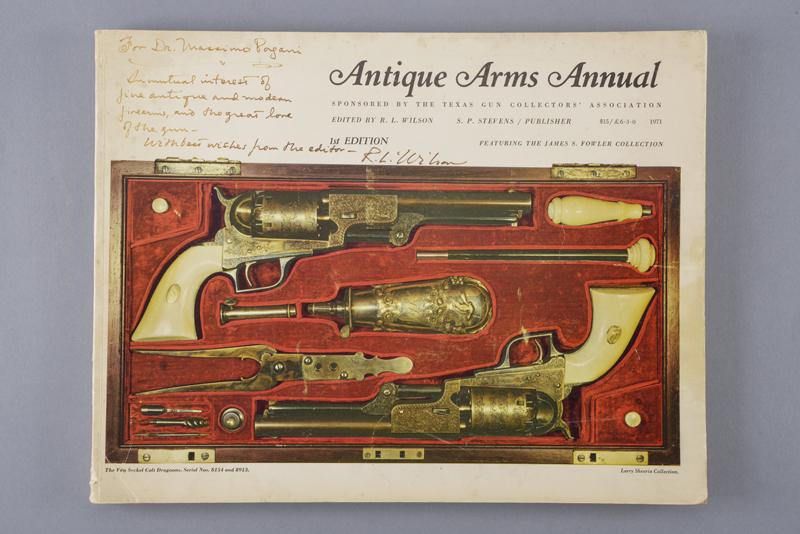 For Dr. Massimo Pagani
In mutual interest of
fine antique and modern
firearms, and the great love
of the gun –
With best wishes from the editor –
R. L. Wilson
Antique Arms Annual
SPONSORED BY THE TEXAS GUN COLLECTORS' ASSOCIATION
EDITED BY R. L. WILSON S. P. STEVENS / PUBLISHER $15/£6-3-0 1971
1st EDITION FEATURING THE JAMES S. FOWLER COLLECTION
The Van Syckel Colt Dragoons. Serial Nos. 8134 and 8913.
Larry Sheerin Collection.